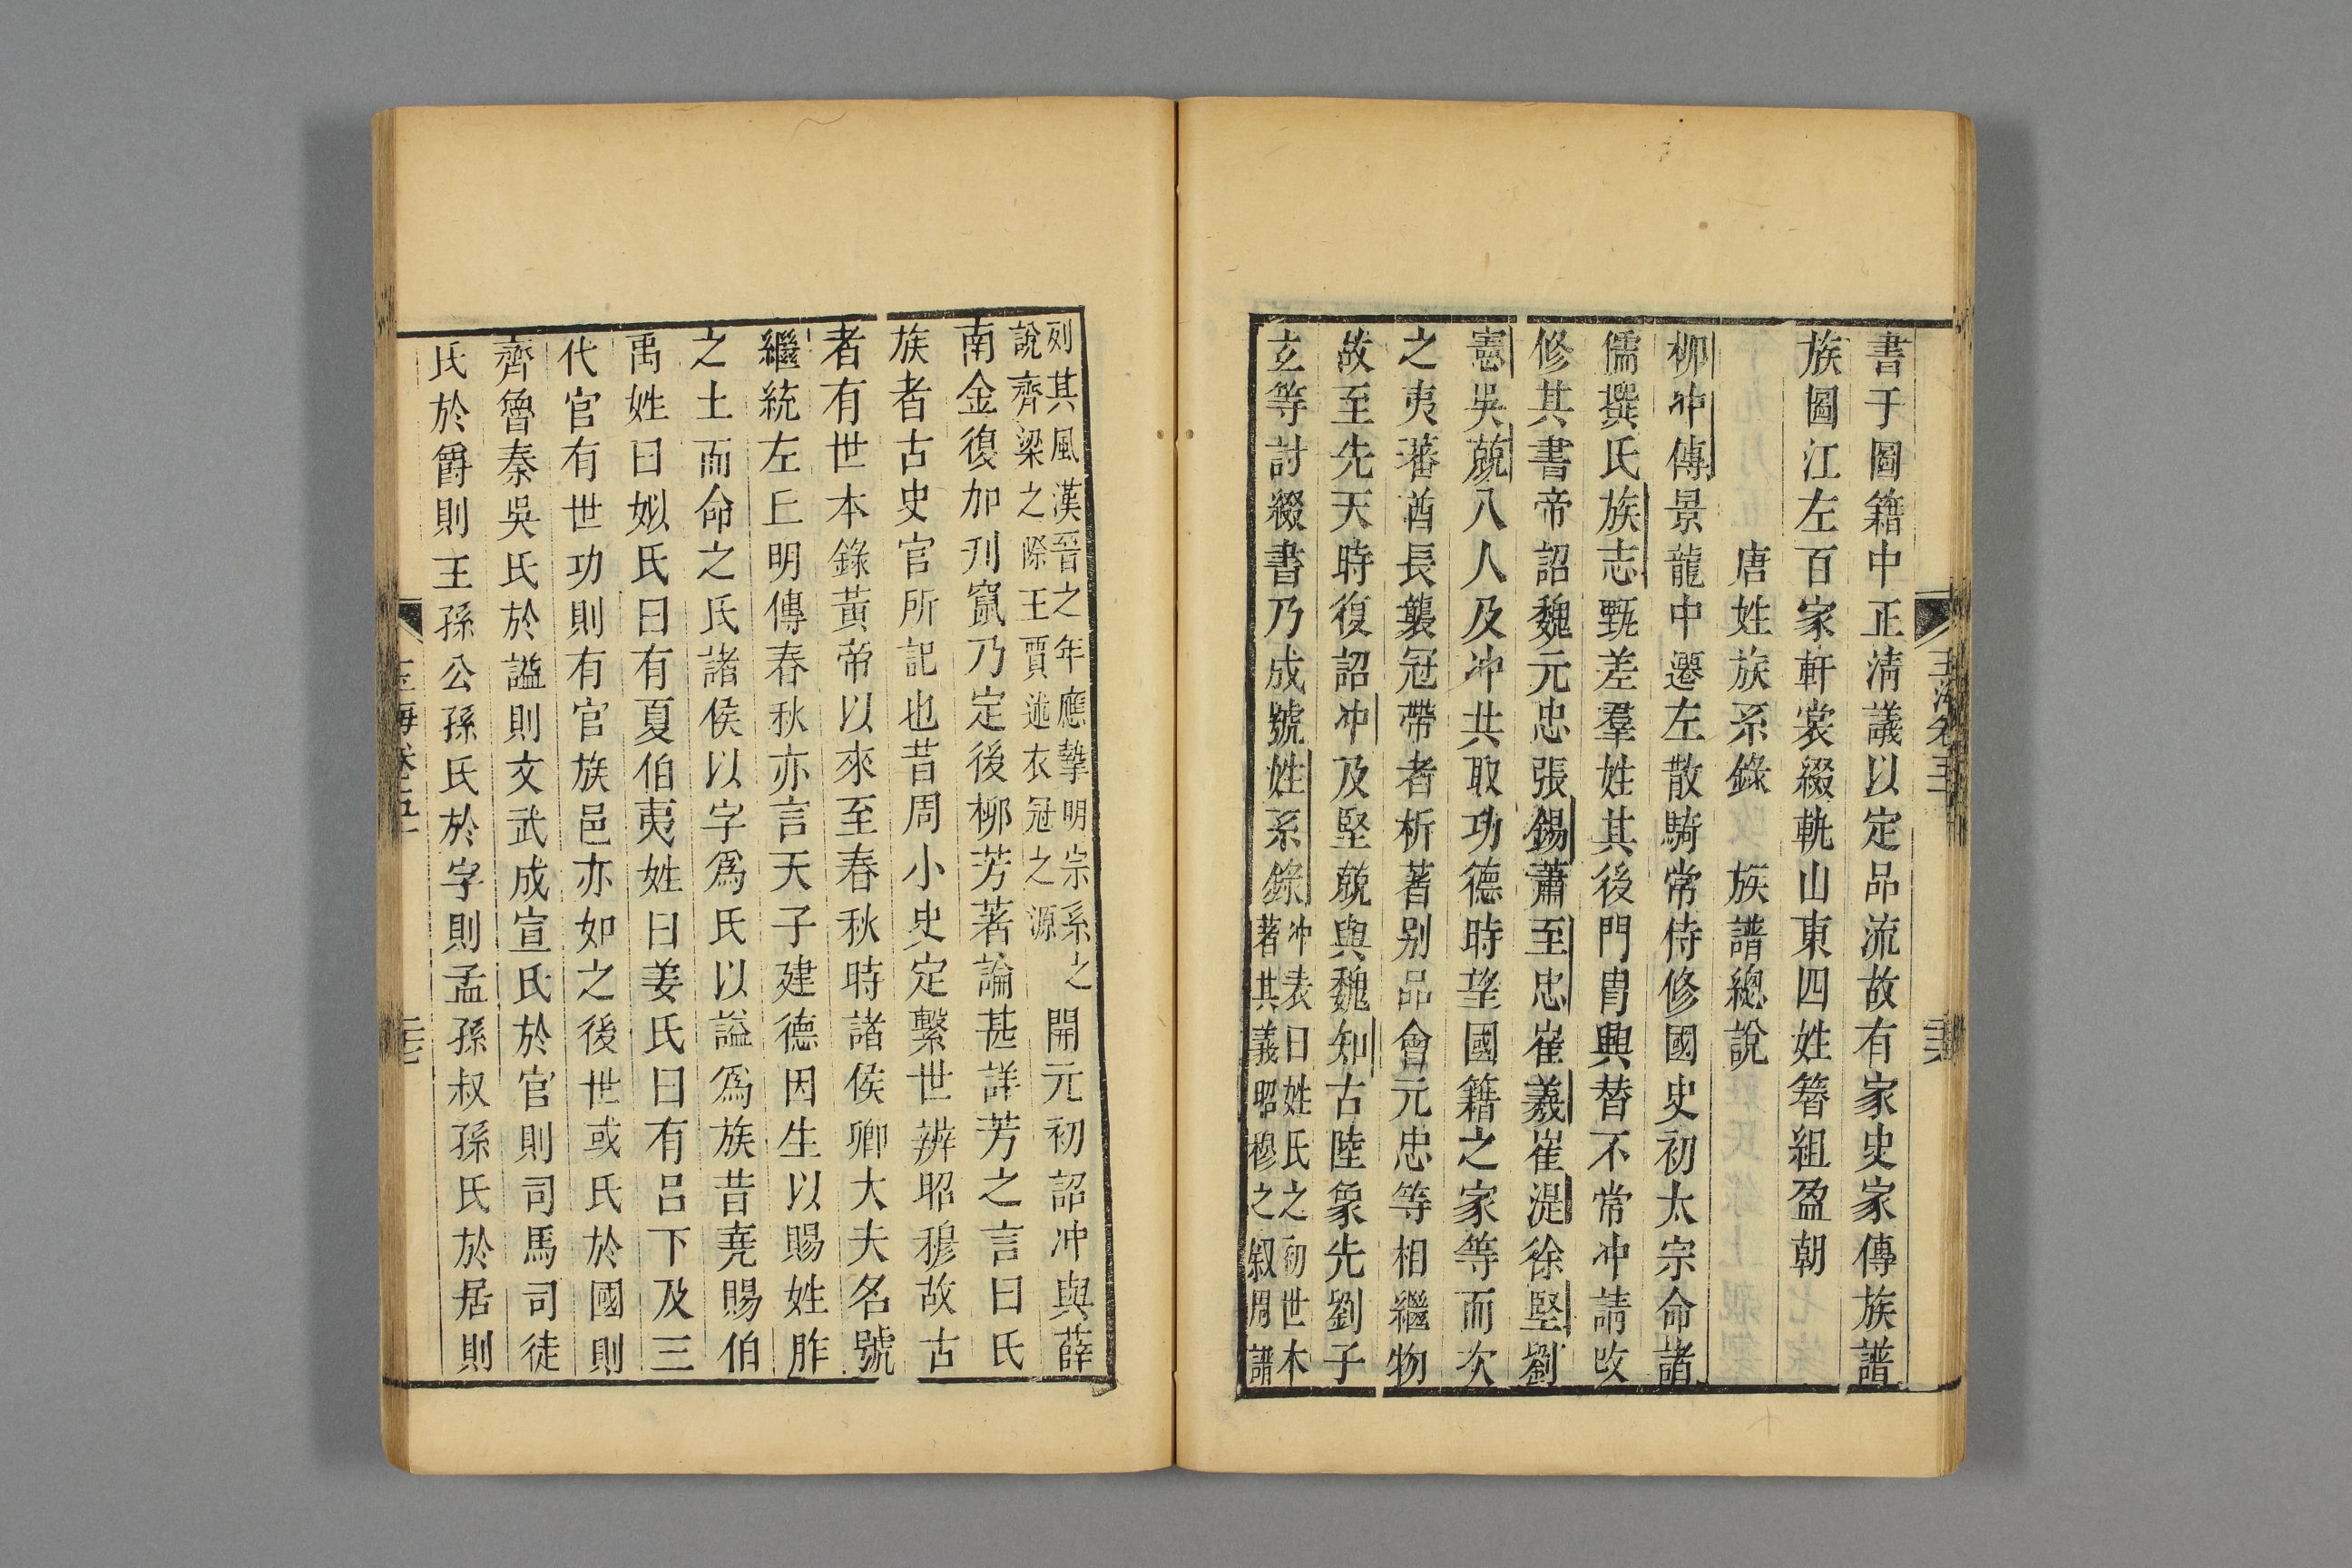 書于圖籍中正清議以定品流故有家史家傳族譜
族圖江左百家軒裳綴軌山東四姓簪組盈朝
唐姓族系錄　族譜總說
柳冲傳景龍中遷左散騎常侍修國史初太宗命諸
儒撰氏族志甄差羣姓其後門胄興替不常冲請改
修其書帝詔魏元忠張錫蕭至忠崔羲崔湜徐堅劉
憲吳兢八人及冲共取功德時望國籍之家等而次
之夷蕃酋長襲冠帶者析著別品會元忠等相繼物
故至先天時復詔冲及堅兢與魏知古陸象先劉子
玄等討綴書乃成號姓系錄
冲表曰姓氏之初世本
著其義昭穆之叙周譜
列其風漢晉之年應摯明宗系之
說齊梁之際王賈述衣冠之源
開元初詔冲與薛
南金復加刋竄乃定後柳芳著論甚詳芳之言曰氏
族者古史官所記也昔周小史定繫世辨昭穆故古
者有世本錄黃帝以來至春秋時諸侯卿大夫名號
繼統左丘明傳春秋亦言天子建德因生以賜姓胙
之土而命之氏諸侯以字爲氏以謚爲族昔堯賜伯
禹姓曰姒氏曰有夏伯夷姓曰姜氏曰有呂下及三
代官有世功則有官族邑亦如之後世或氏於國則
齊魯秦吳氏於謚則文武成宣氏於官則司馬司徒
氏於爵則王孫公孫氏於字則孟孫叔孫氏於居則